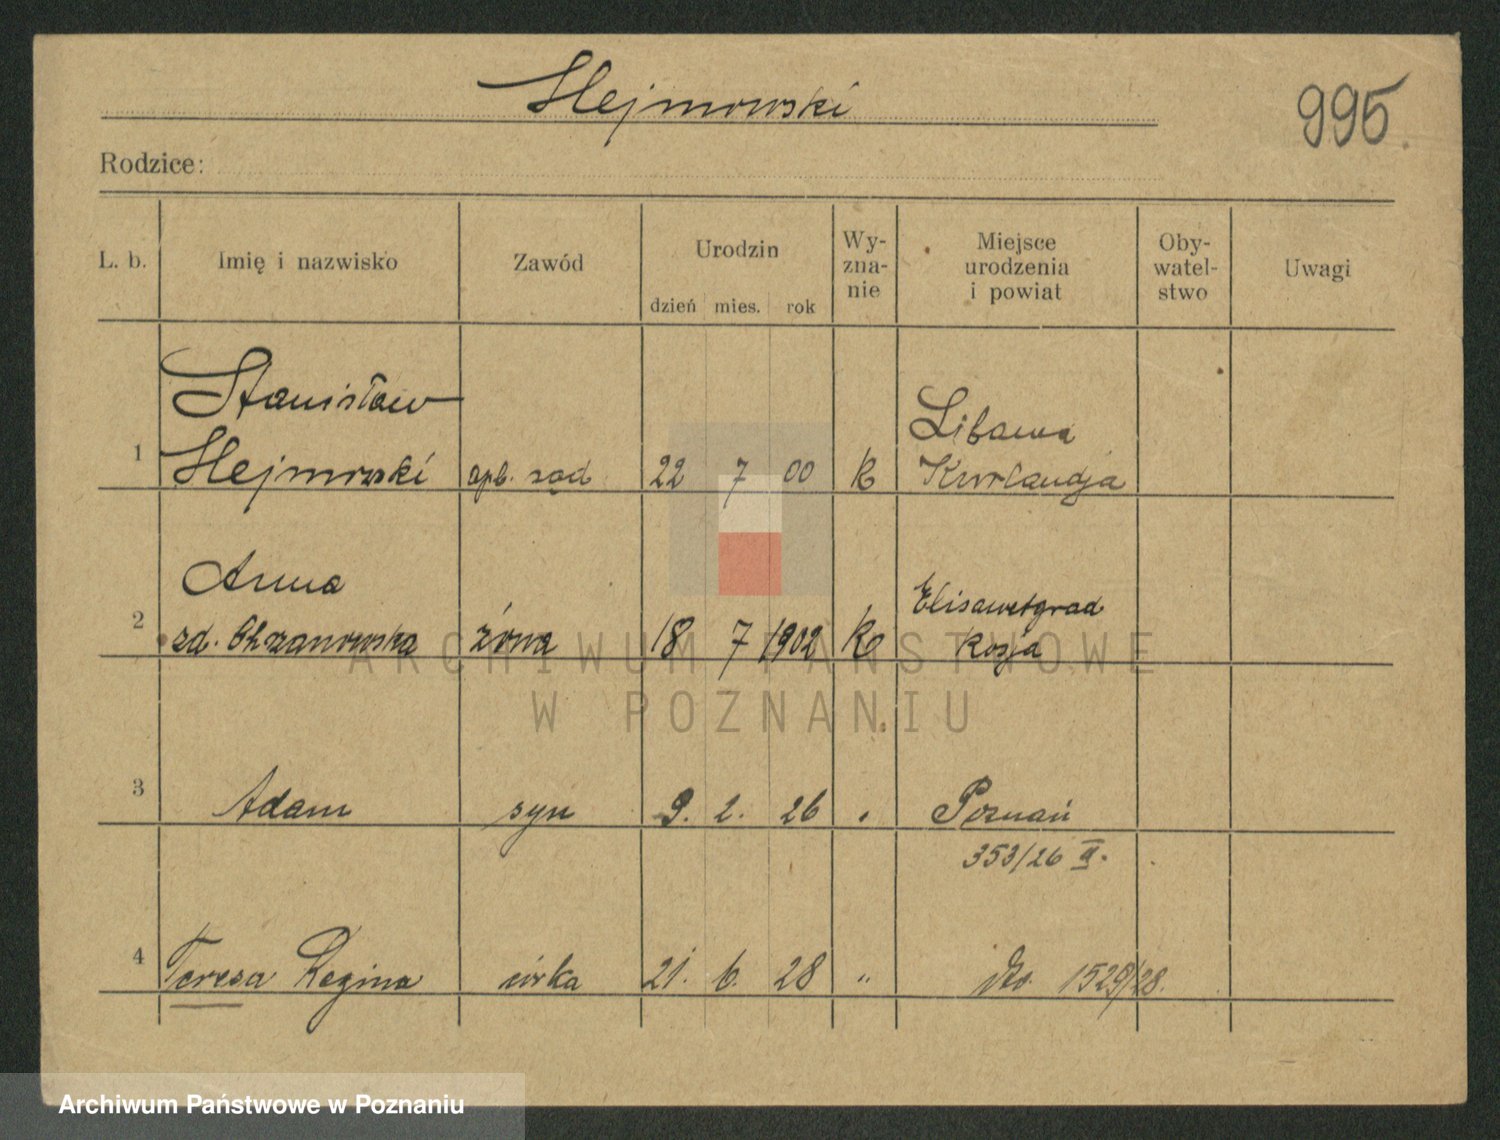 Hejmowski
995.
Rodzice:
L. b. Imię i nazwisko Zawód Urodzin dzień mies. rok Wy-zna-nie Miejsce urodzenia i powiat Oby-watel-stwo Uwagi
Stanisław Libawa
1 Hejmowski apl. sąd 22 7 00 k Kurlandja
Anna Elisawetgrad
2 zd. Chrzanowska żona 18 7 1902 k Rosja
ARCHIWUM PAŃSTWOWE
W POZNANIU
3 Adam syn 9. 2. 26 " Poznań
353/26 II.
4 Teresa Regina córka 21. 6. 28 " dto. 1529/28.
Archiwum Państwowe w Poznaniu